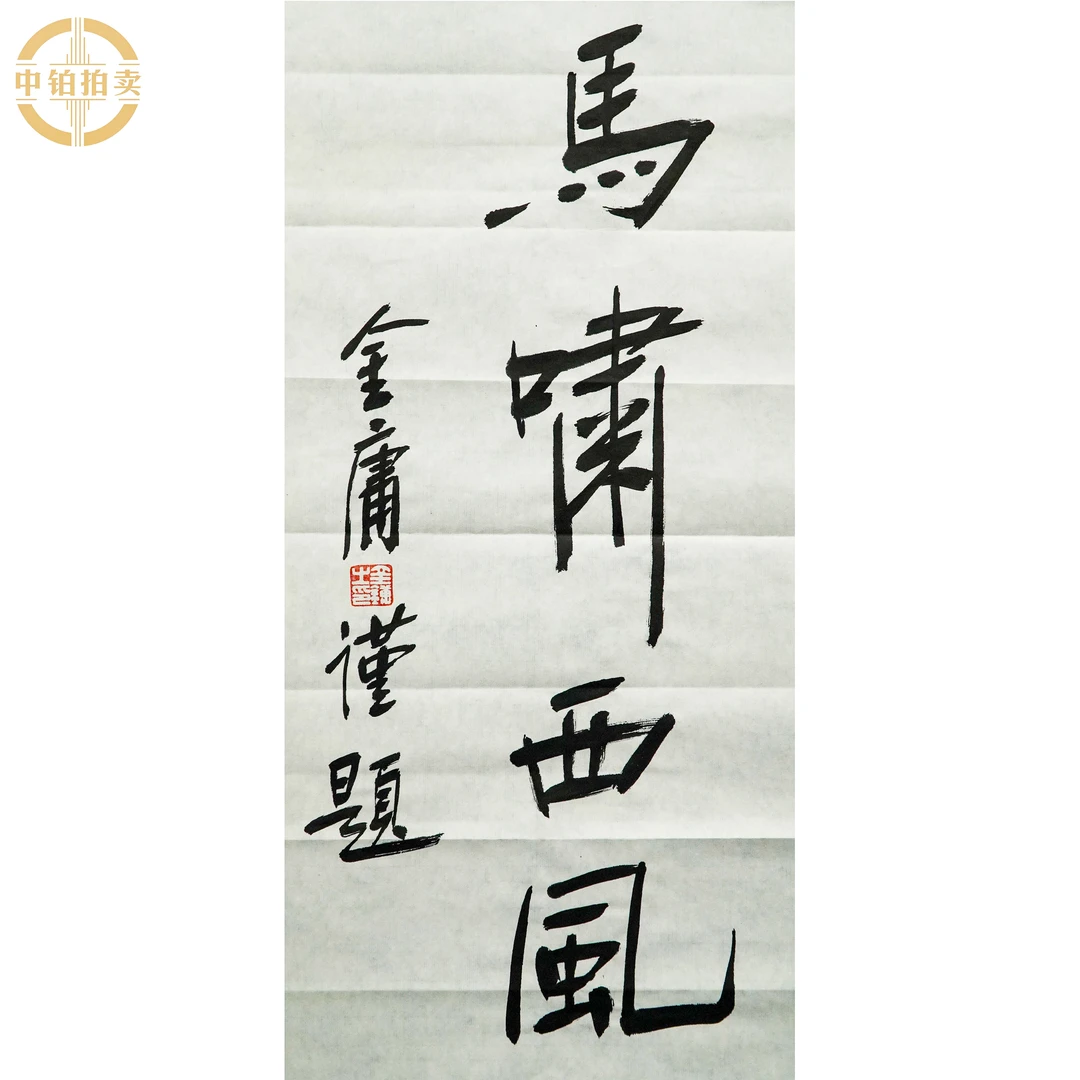 中铂拍卖
馬嘯西風
金庸
謹題